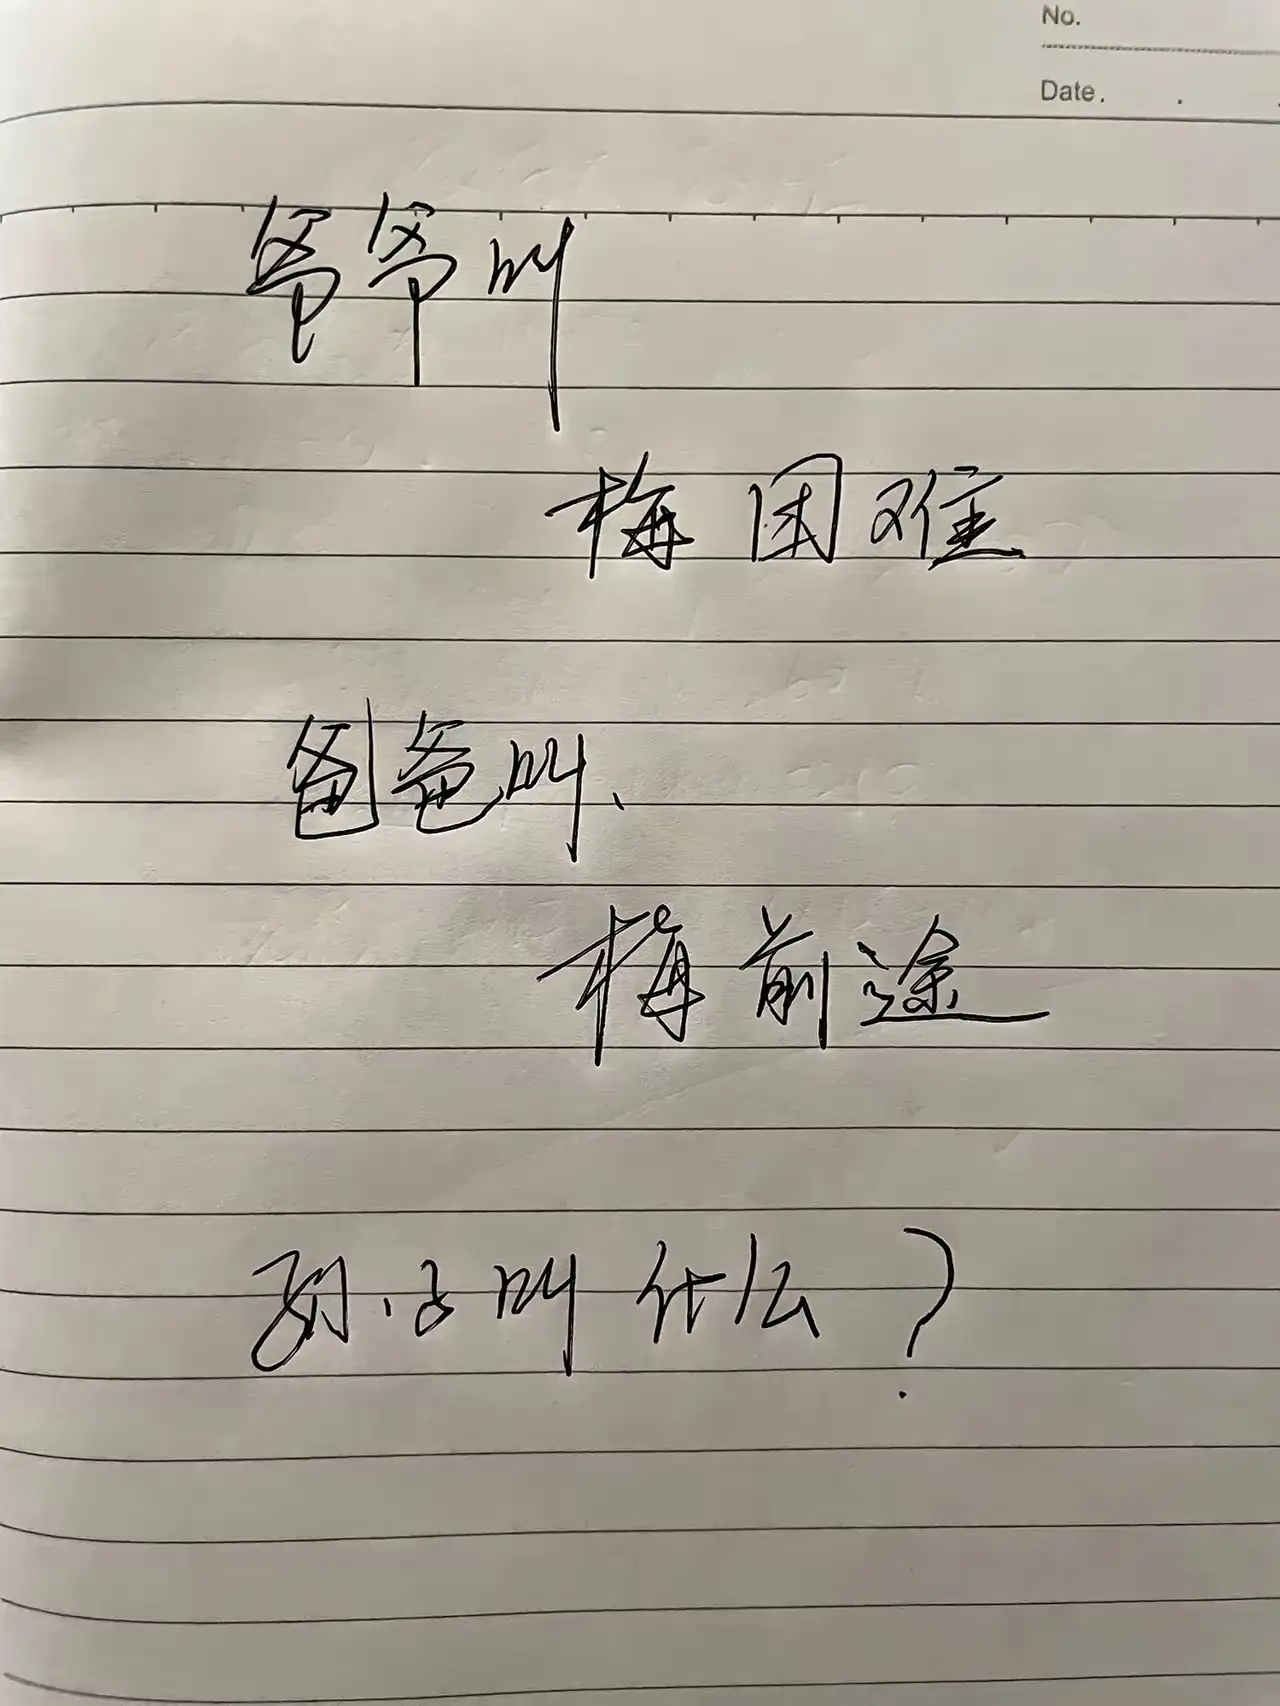 No.
Date.
爷爷叫
梅困难
爸爸叫、
梅前途
孙子叫什么？